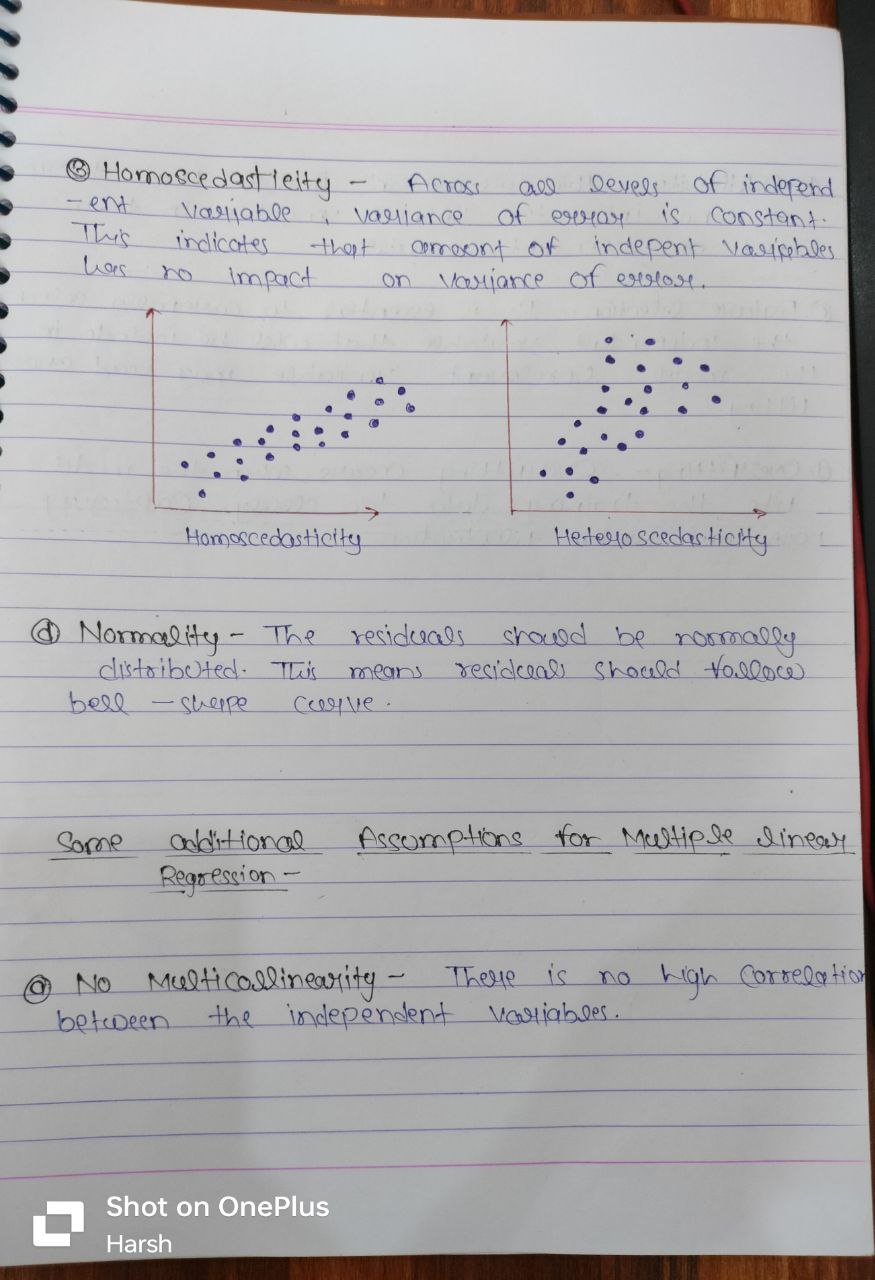 ③ Homoscedasticity - Across all levels of independ
-ent variable, variance of error is constant.
This indicates that amount of indepent variables
has no impact on variance of error.
Homoscedasticity
Heteroscedasticity
ⓓ Normality - The residuals should be normally
distributed. This means residuals should follow
bell - shape curve.
Some additional Assumptions for Multiple linear
Regression -
ⓐ No Multicollinearity - There is no high Correlation
between the independent variables.
Shot on OnePlus
Harsh